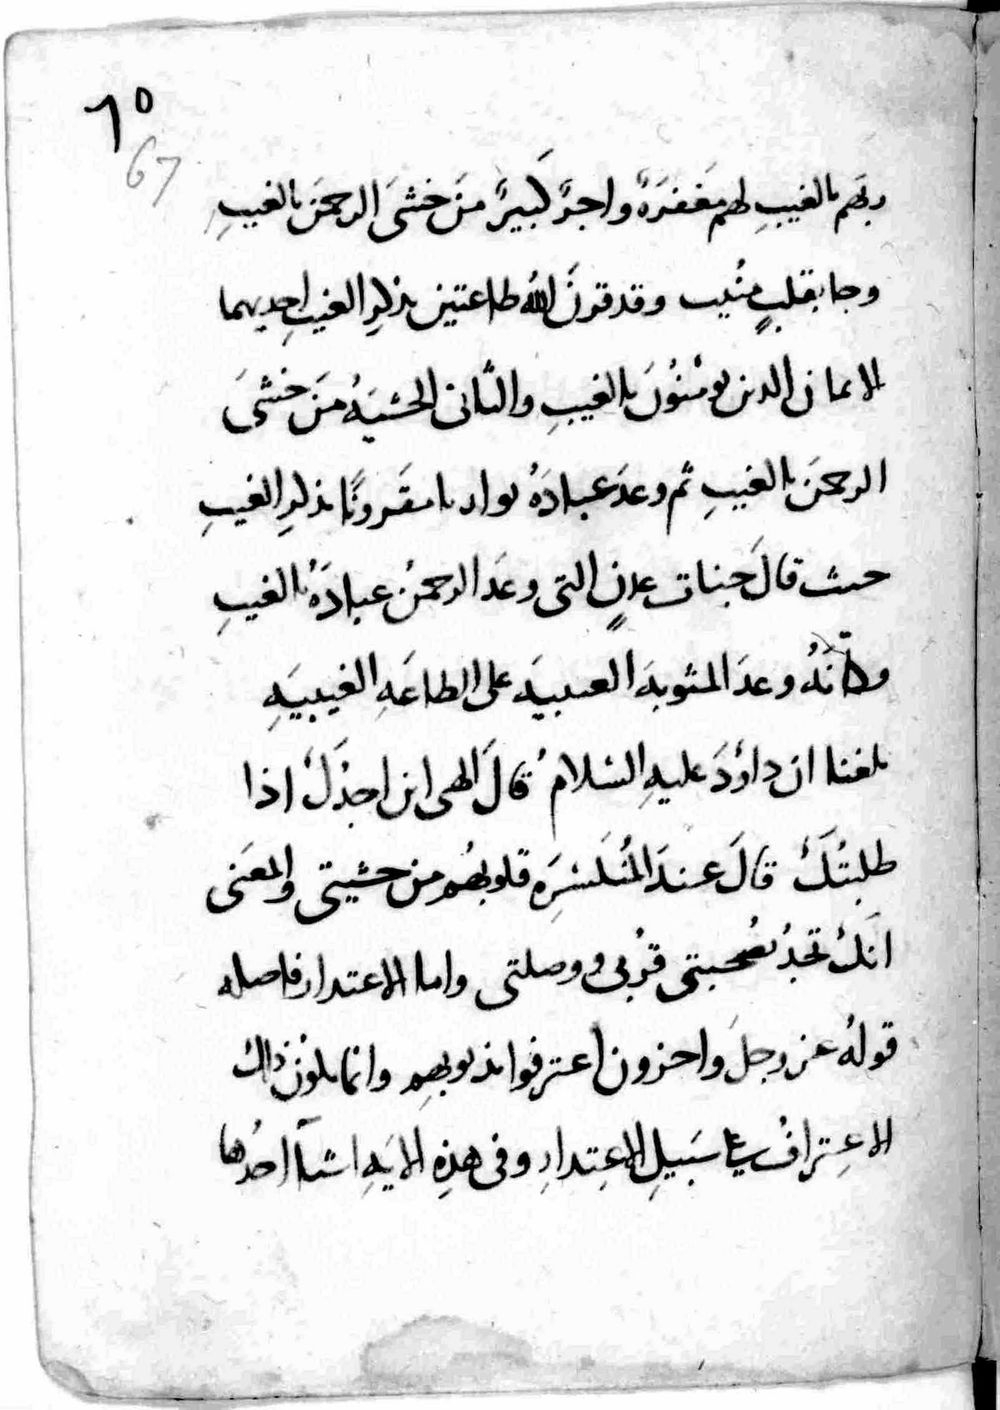 ٦٥
67
ربهم بالغيبِ لهم مَغفرَةٌ واجرٌ كَبيرٌ منَ خشىَ الرحمَن بالغيبِ
وجا بقلبٍ مُنيب وقد قرنَ اللهُ طاعتين بذكرِ الغيبِ احديهما
الايمان الذين يومنُونَ بالغيبِ والثانى الخشيَهُ منَ خشىَ
الرحمَن بالغيبِ ثم وعدَ عبادَهُ ثوابا مقرونًا بذكرِ الغيبِ
حيث قالَ جنات عدنٍ التى وعَد الرحمنُ عبادَهُ بالغيبِ
وكانّهُ وعدَ المثوبهَ الغيبيه على الطاعَهِ الغيبيَهِ
بلغنا ان داوُدَ عليهِ السّلامُ قالَ الهى اين اجدُكَ اذا
طلبتُكَ قالَ عندَ المُنكسِرَهِ قلوبُهُم من خشيتى والمعَنى
انكَ تجدُ بصُحبتى قرُبى ووصلتى واما الاعتدار فاصله
قولهُ عز وجلَ واخرون اعترفوا بذنوبهِم وانما يكون ذلك
الاعِترافُ على سَبيلِ الاعِتدارِ وفى هذِهِ الايَهِ اشيآ احدُها